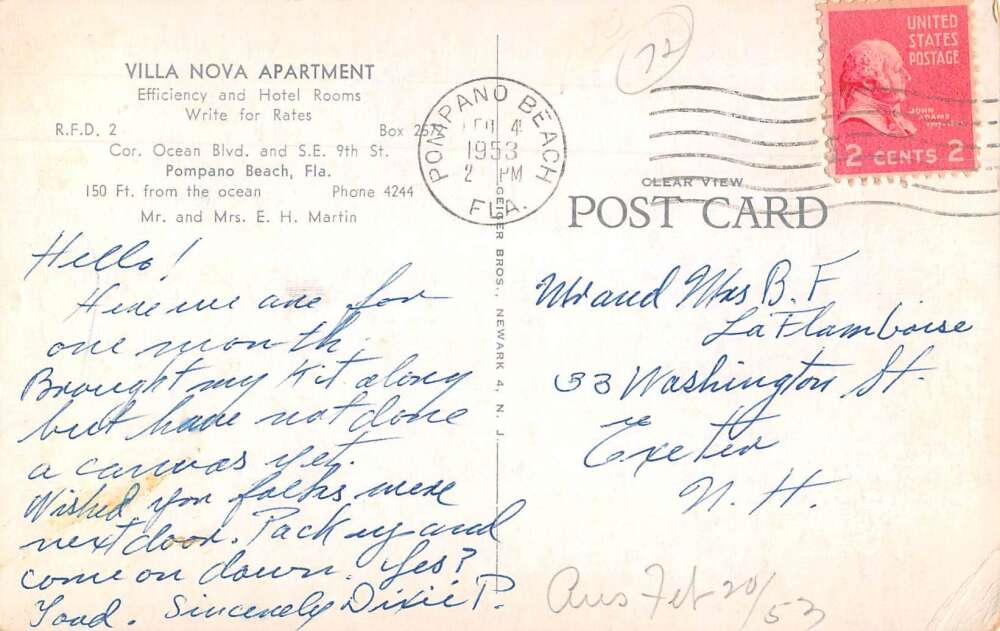 VILLA NOVA APARTMENT
Efficiency and Hotel Rooms
Write for Rates
R.F.D. 2 Box 257
Cor. Ocean Blvd. and S.E. 9th St.
Pompano Beach, Fla.
150 Ft. from the ocean Phone 4244
Mr. and Mrs. E. H. Martin
Hello!
Here we are for
one month.
Brought my kit along
but have not done
a canvas yet.
Wished you folks were
next door. Pack up and
come on down. Yes?
Sincerely Dixie P.
GEIGER BROS., NEWARK 4, N. J.
POMPANO BEACH
4
1953
2 PM
FLA.
72
UNITED
STATES
POSTAGE
JOHN
ADAMS
2 CENTS 2
CLEAR VIEW
POST CARD
Mr and Mrs B. F
LaFlamboise
33 Washington St.
Exeter
N. H.
Ans Feb 20/53